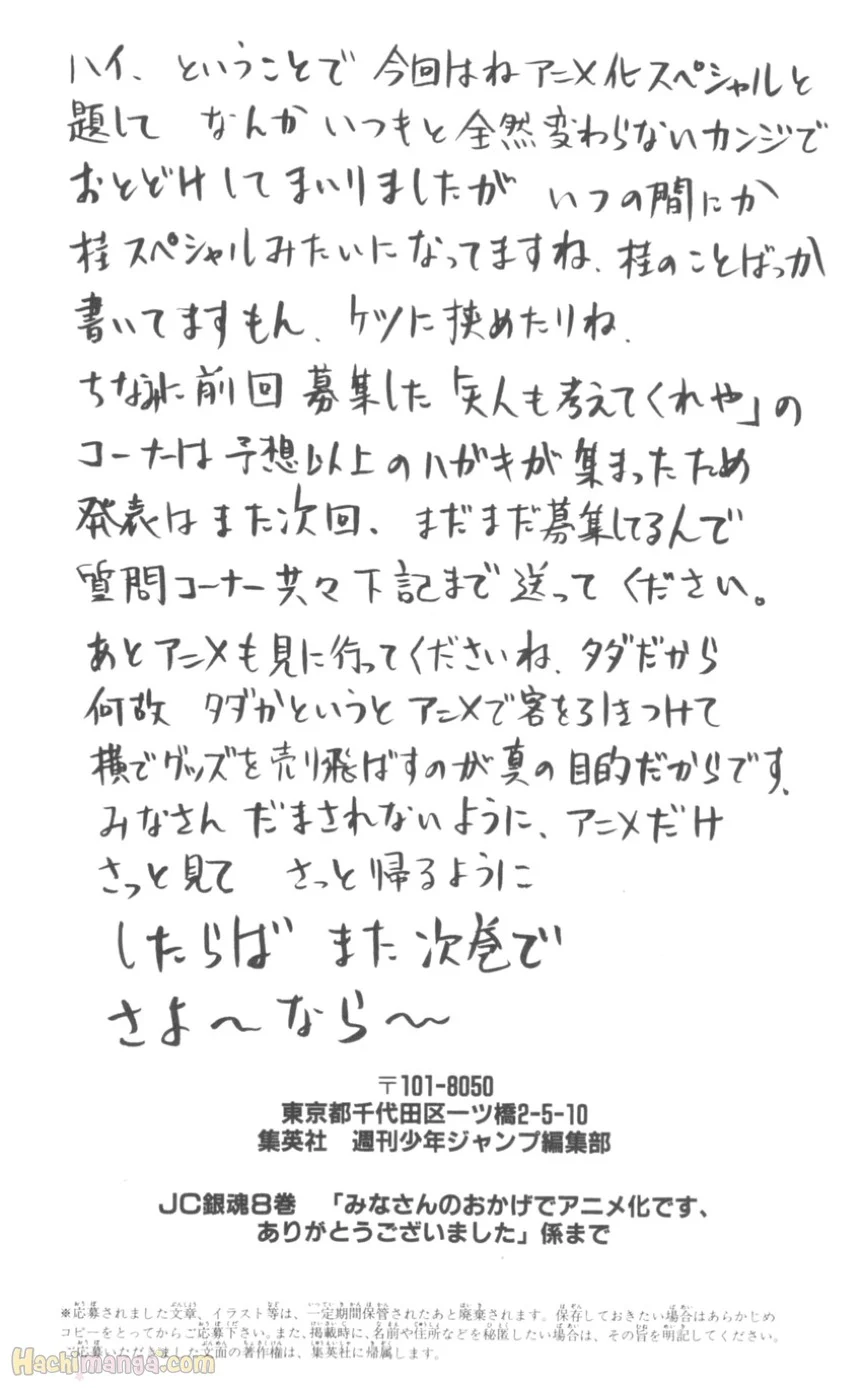 ハイ、ということで 今回はねアニメ化スペシャルと
題して なんか いつもと全然変わらないカンジで
おとどけしてまいりましたが いつの間にか
桂スペシャルみたいになってますね、桂のことばっか
書いてますもん、ケツに挟めたりね、
ちなみに前回 募集した「天人も考えてくれや」の
コーナーは予想以上のハガキが集まったため
発表はまた次回、まだまだ募集してるんで
質問コーナー共々下記まで送ってください。
あとアニメも見に行ってくださいね、タダだから
何故 タダかというと アニメで客を引きつけて
横でグッズを売り飛ばすのが真の目的だからです、
みなさん だまされないように、アニメだけ
さっと見て さっと帰るように
したらば また 次巻で
さよ〜なら〜
〒101-8050
東京都千代田区一ツ橋2-5-10
集英社 週刊少年ジャンプ編集部
JC銀魂8巻 「みなさんのおかげでアニメ化です、
ありがとうございました」係まで
※応募されました文章、イラスト等は、一定期間保管されたあと廃棄されます。保存しておきたい場合はあらかじめ
コピーをとってからご応募下さい。また、掲載時に、名前や住所などを秘匿したい場合は、その旨を明記してください。
ご応募いただきました文面の著作権は、集英社に帰属します。
Hachimanga.com